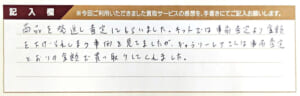 記入欄
※今回ご利用いただきました買取サービスの感想を、手書きにてご記入お願いします。
商品を発送し査定にしてもらいました。ネットでは事前査定より金額
を下げられてしまう事例を見てましたが、ギャラリーレアさんは事前査定
とおりの金額で買い取りしてくれました。